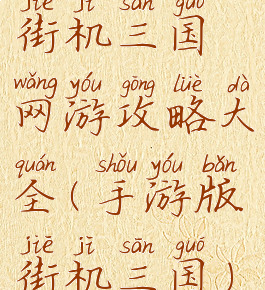 jiē jī sān guó
街机三国
wǎng yóu gōng lüè dà
网游攻略大
quán shǒu yóu bǎn
全(手游版
jiē jī sān guó
街机三国)